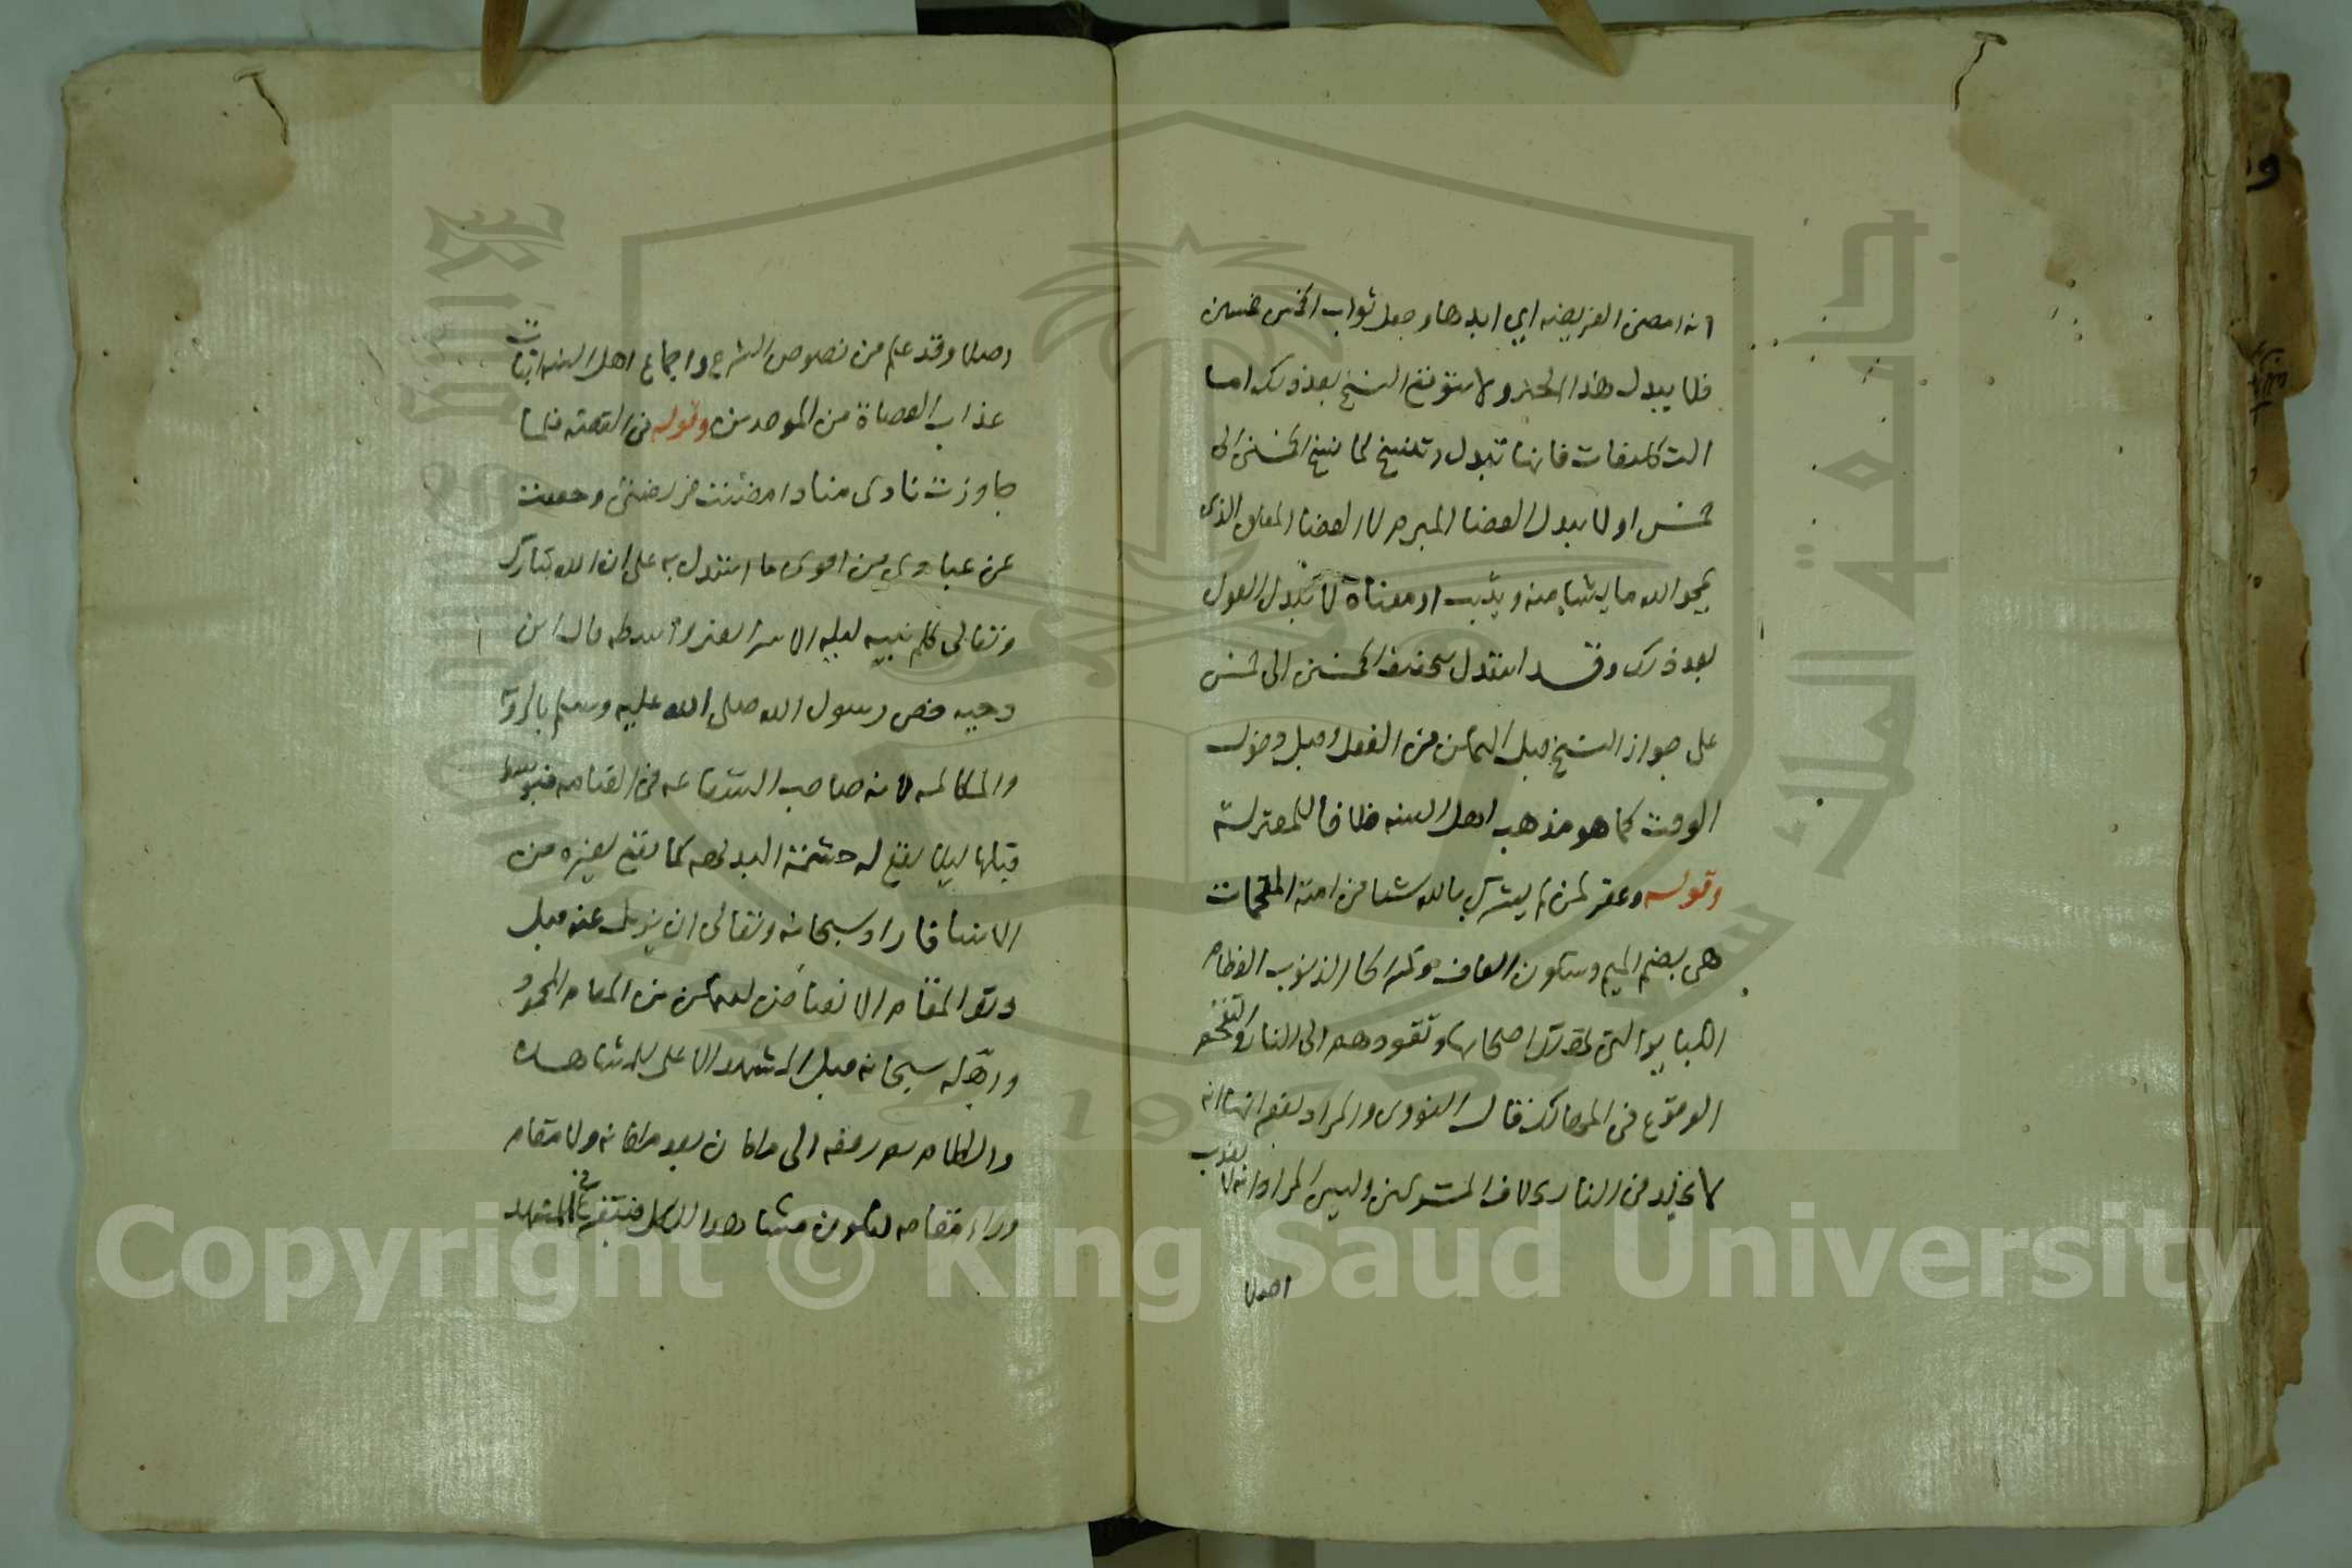 انه امضى الفريضه اي ابدها وجعل ثواب الخمس خمسين
فلا يبدل هذا الخبر ولا يتوقع النسخ بعد ذلك اما
التكليفات فانها تبدل وتنسخ كما نسخ الخمسين الى
خمس او لا يبدل القضا المبرم لا القضا المعلق الذى
يمحو الله ما يشا منه ويثبت او معناه لا يبدل القول
بعد ذلك وقد استدل بتخفيف الخمسين الى خمس
على جواز النسخ قبل التمكن من الفعل وقبل دخول
الوقت كما هو مذهب اهل السنه خلافا للمعتزلة
وقوله وغفر لمن لم يشرك بالله شيا من امته المقحمات
هي بضم الميم وسكون القاف وكسر الحا الذنوب العظام
الكبائر التي تهلك اصحابها وتقودهم الى النار والتقحم
الوقوع في المهالك قال النووى والمراد بغفرانها انه
لا يخلد في النار بخلاف المشركين وليس المراد انه لا يعذب
اصلا
اصلا وقد علم من نصوص الشرع واجماع اهل السنه اثبات
عذاب العصاة من الموحدين وقوله في القصه فلما
جاوزت نادى مناد امضيت فريضتي وخففت
عن عبادي من اقوى ما استدل به على ان الله تبارك
وتعالى كلم نبيه ليلة الاسرا بغير واسطه قال ابن
دحيه خص رسول الله صلى الله عليه وسلم بالرويا
والمكالمه لانه صاحب الشفاعه في القيامه
قبلها ليلا يقع له حشمة البديهه كما يقع لغيره من
الانبيا فاراد سبحانه وتعالى ان يزيل عنه قبل
ذلك المقام الانقباض ليتمكن من المقام المحمود
سبحانه قبل المشهد الاعلى للمشاهده
والكلام الى ما كان بعد مكانه ولا مقام
وراء مقامه ليكون مشاهدا للكل المشهد